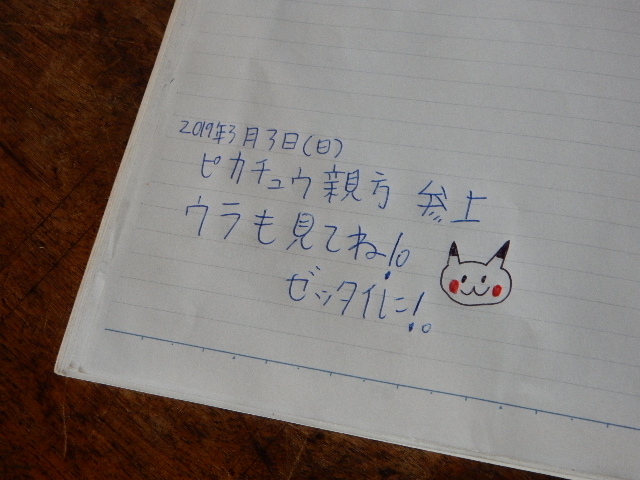 2019年3月3日(日)
ピカチュウ親方 参上
ウラも見てね!。
ゼッタイに!。